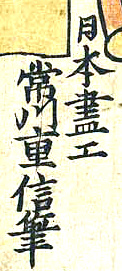 日本畫工
常川重信筆